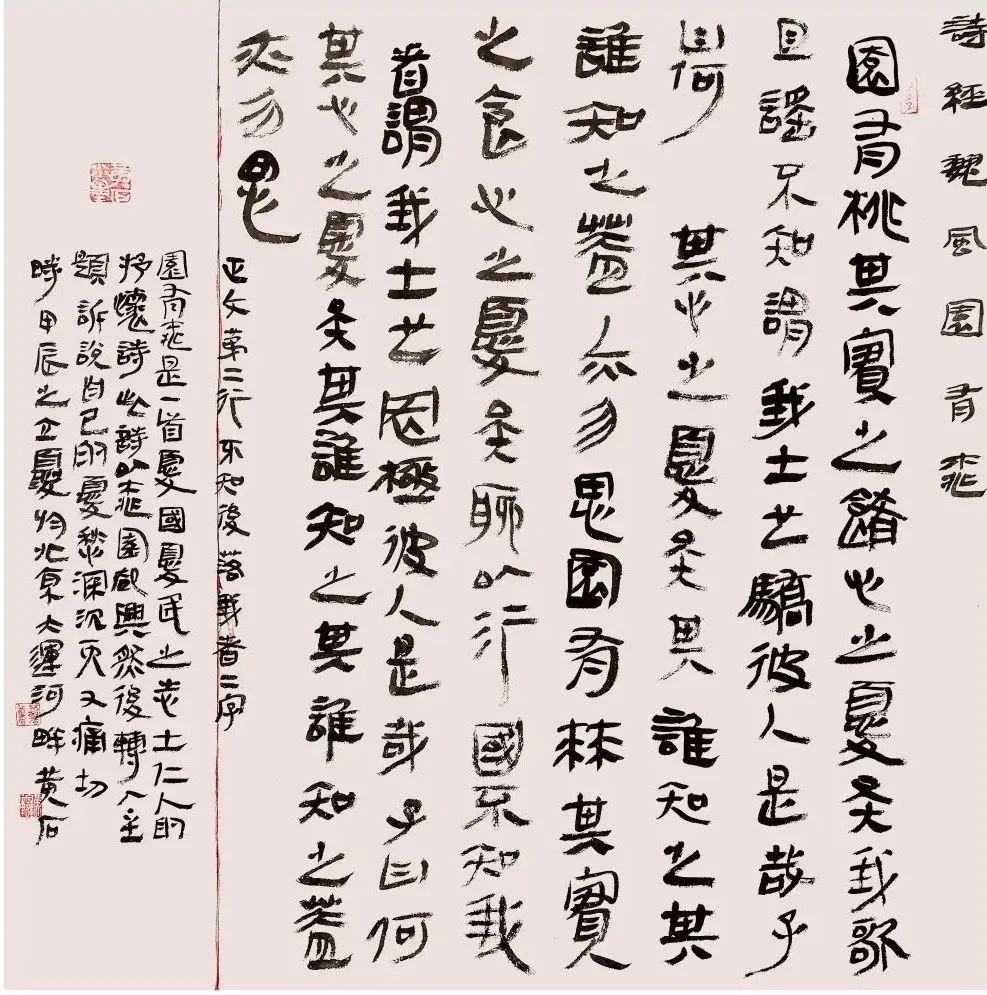 詩經魏風園有桃
園有桃其實之餚心之憂矣我歌
且謠不知謂我士也驕彼人是哉子
曰何 其心之憂矣其誰知之其
誰知之蓋亦勿思園有棘其實
之食心之憂矣聊以行國不知我
者謂我士也罔極彼人是哉子曰何
其心之憂矣其誰知之其誰知之蓋
亦勿思
正文第二行不知後落我者二字
園有桃是一首憂國憂民之志士仁人的
抒懷詩此詩以桃園起興然後轉入主
題訴說自己的憂愁深沉而又痛切
時甲辰之立夏於北京大運河畔黃石